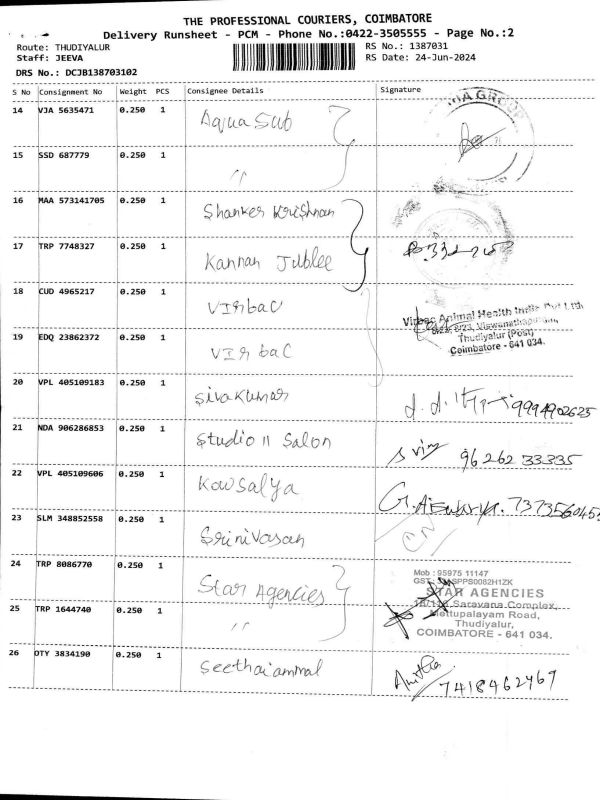 THE PROFESSIONAL COURIERS, COIMBATORE
Delivery Runsheet - PCM - Phone No.:0422-3505555 - Page No.:2
Route: THUDIYALUR
RS No.: 1387031
Staff: JEEVA
RS Date: 24-Jun-2024
DRS No.: DCJB138703102
S No Consignment No Weight PCS Consignee Details Signature
14 VJA 5635471 0.250 1 Aqua Sub
15 SSD 687779 0.250 1 "
16 MAA 573141705 0.250 1 Shanker Krishnan
17 TRP 7748327 0.250 1 Kannan Jublee
18 CUD 4965217 0.250 1 Virbac
Virbac Animal Health India Pvt Ltd
19 EDQ 23862372 0.250 1 Virbac
Thudiyalur (Post)
Coimbatore - 641 034.
20 VPL 405109183 0.250 1 Sivakumar
9994902625
21 NDA 906286853 0.250 1 Studio 11 Salon
96262 33335
22 VPL 405109606 0.250 1 Kowsalya
G. Aiswarya. 7373560453
23 SLM 348852558 0.250 1 Srinivasan
24 TRP 8086770 0.250 1 Star Agencies
Mob : 95975 11147
STAR AGENCIES
Saravana Complex,
25 TRP 1644740 0.250 1 "
Mettupalayam Road,
Thudiyalur,
COIMBATORE - 641 034.
26 OTY 3834190 0.250 1 Seethaiammal
Anitha
7418462467